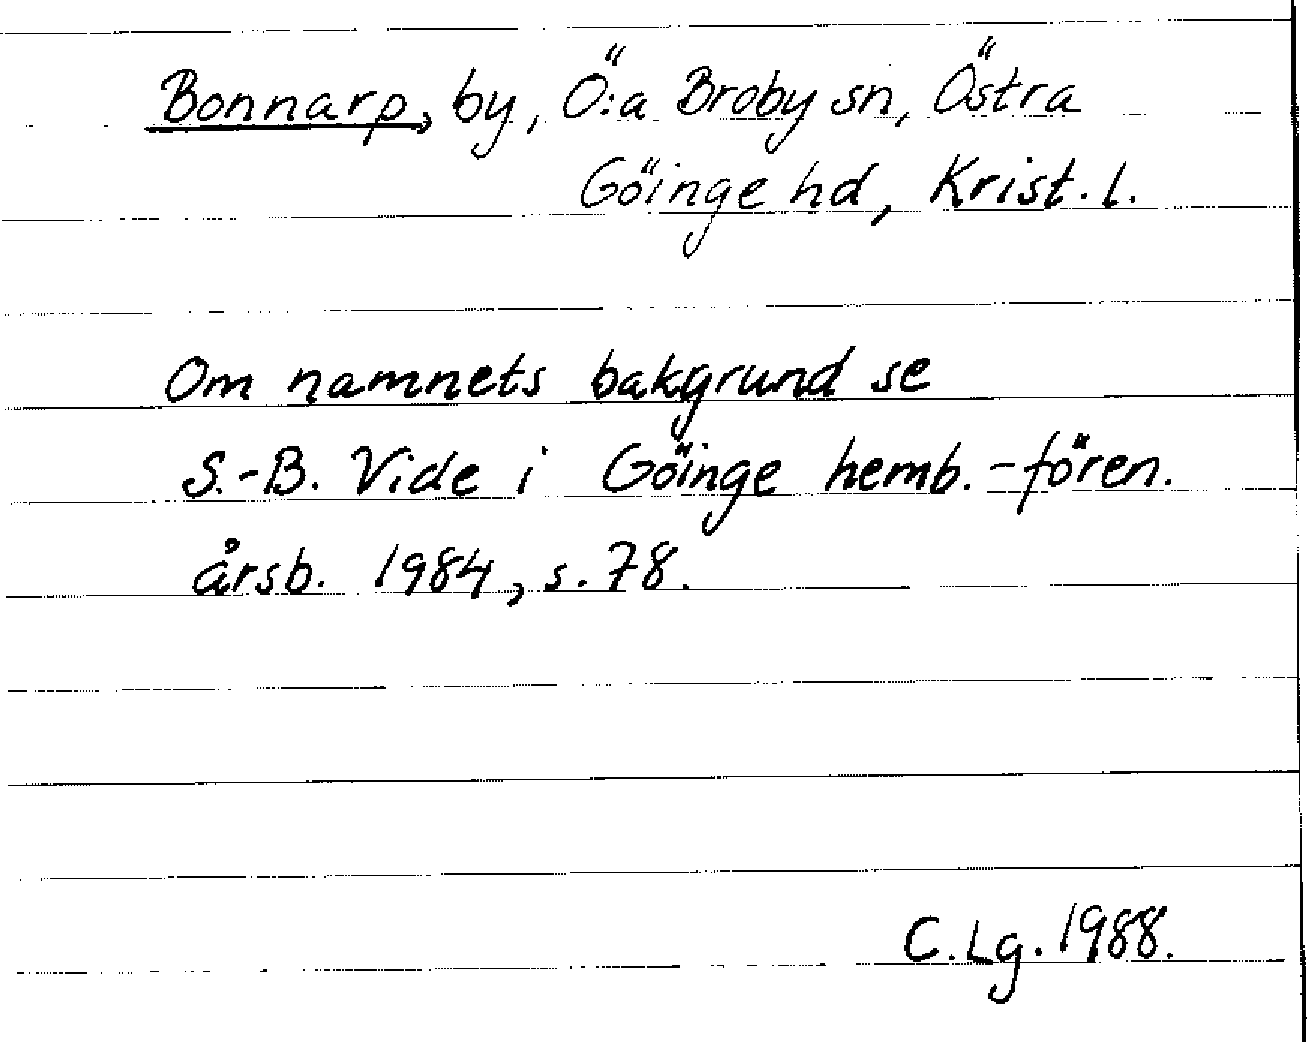 Bonnarp, by, Ö:a Broby sn, Östra
Göinge hd, Krist. l.
Om namnets bakgrund se
S.-B. Vide i Göinge hemb.-fören.
årsb. 1984, s. 78.
C. Lg. 1988.